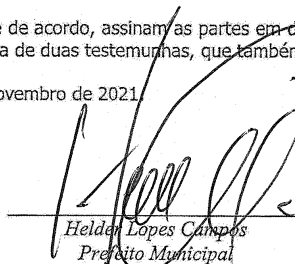 e de acordo, assinam as partes em d
a de duas testemunhas, que també
ovembro de 2021.
Helder Lopes Campos
Prefeito Municipal